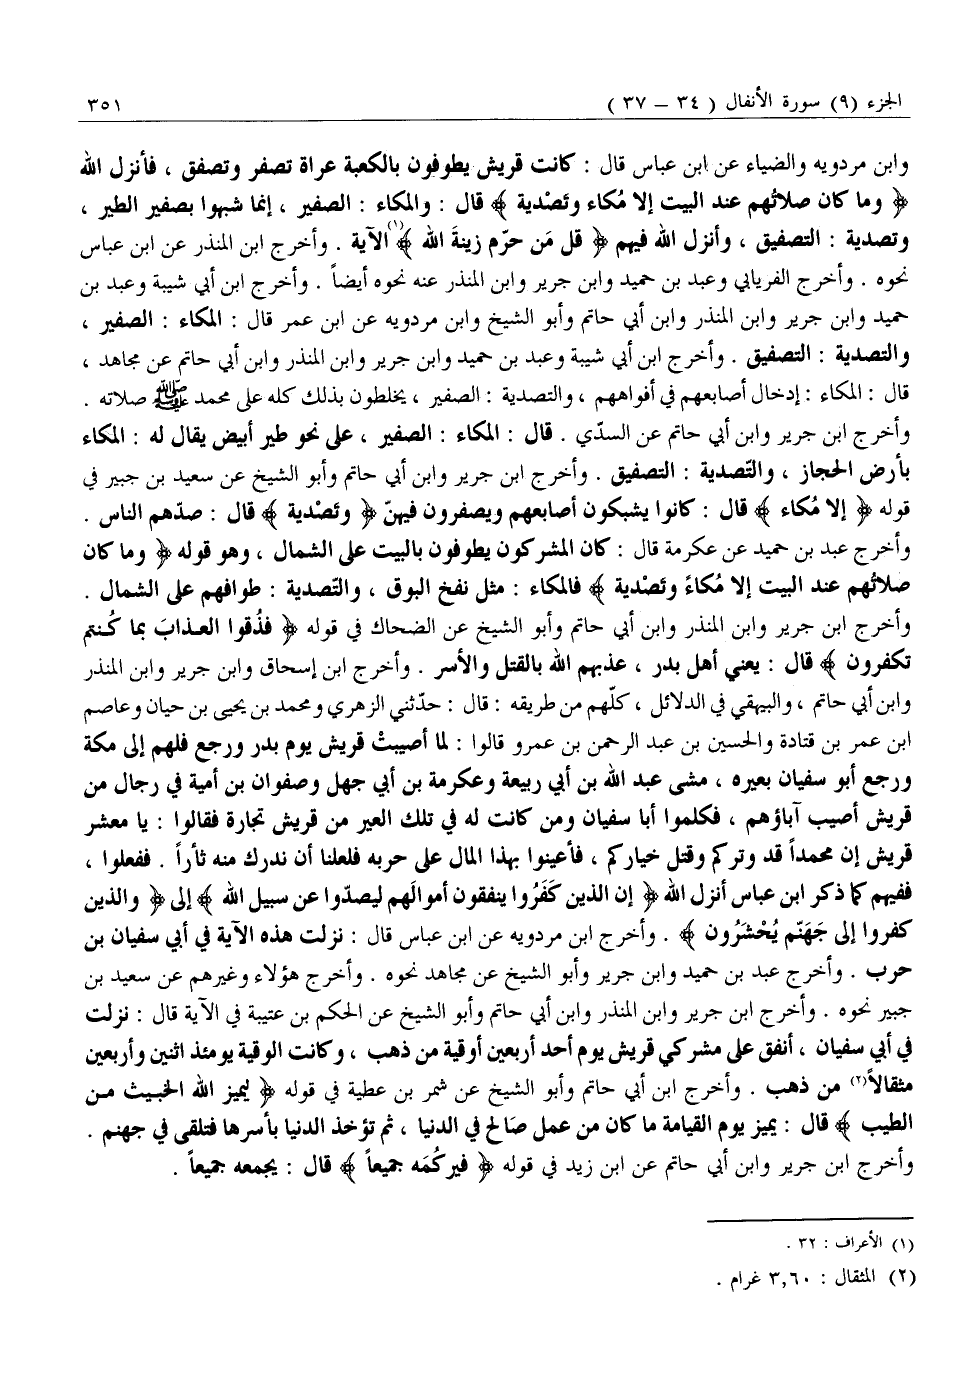 الجزء (٩) سورة الأنفال ( ٣٤ – ٣٧ ) ٣٥١
وابن مردويه والضياء عن ابن عباس قال : كانت قريش يطوفون بالكعبة عراة تصفر وتصفق ، فأنزل الله
﴿ وما كان صلاتُهم عند البيت إلا مُكاء وتَصْدية ﴾ قال : والمكاء : الصفير ، إنما شبهوا بصفير الطير ،
وتصدية : التصفيق ، وأنزل الله فيهم ﴿ قل مَن حرّم زينةَ الله ﴾(١) الآية . وأخرج ابن المنذر عن ابن عباس
نحوه . وأخرج الفريابي وعبد بن حميد وابن جرير وابن المنذر عنه نحوه أيضاً . وأخرج ابن أبي شيبة وعبد بن
حميد وابن جرير وابن المنذر وابن أبي حاتم وأبو الشيخ وابن مردويه عن ابن عمر قال : المكاء : الصفير ،
والتصدية : التصفيق . وأخرج ابن أبي شيبة وعبد بن حميد وابن جرير وابن المنذر وابن أبي حاتم عن مجاهد ،
قال : المكاء : إدخال أصابعهم في أفواههم ، والتصدية : الصفير ، يخلطون بذلك كله على محمد ﷺ صلاته .
وأخرج ابن جرير وابن أبي حاتم عن السدّي . قال : المكاء : الصفير ، على نحو طير أبيض يقال له : المكاء
بأرض الحجاز ، والتّصدية : التصفيق . وأخرج ابن جرير وابن أبي حاتم وأبو الشيخ عن سعيد بن جبير في
قوله ﴿ إلا مُكاء ﴾ قال : كانوا يشبكون أصابعهم ويصفرون فيهنّ ﴿ وتَصْدية ﴾ قال : صدّهم الناس .
وأخرج عبد بن حميد عن عكرمة قال : كان المشركون يطوفون بالبيت على الشمال ، وهو قوله ﴿ وما كان
صلاتُهم عند البيت إلا مُكاءً وتَصْدية ﴾ فالمكاء : مثل نفخ البوق ، والتصدية : طوافهم على الشمال .
وأخرج ابن جرير وابن المنذر وابن أبي حاتم وأبو الشيخ عن الضحاك في قوله ﴿ فذُقوا العذابَ بما كُنتم
تكفرون ﴾ قال : يعني أهل بدر ، عذبهم الله بالقتل والأسر . وأخرج ابن إسحاق وابن جرير وابن المنذر
وابن أبي حاتم ، والبيهقي في الدلائل ، كلّهم من طريقه : قال : حدّثني الزهري ومحمد بن يحيى بن حيان وعاصم
ابن عمر بن قتادة والحسين بن عبد الرحمن بن عمرو قالوا : لما أصيبتْ قريش يوم بدر ورجع فلهم إلى مكة
ورجع أبو سفيان بعيره ، مشى عبد الله بن أبي ربيعة وعكرمة بن أبي جهل وصفوان بن أمية في رجال من
قريش أصيب آباؤهم ، فكلموا أبا سفيان ومن كانت له في تلك العير من قريش تجارة فقالوا : يا معشر
قريش إن محمداً قد وتركم وقتل خياركم ، فأعينوا بهذا المال على حربه فلعلنا أن ندرك منه ثأراً . ففعلوا ،
ففيهم كما ذكر ابن عباس أنزل الله ﴿ إن الذين كَفَرُوا ينفقون أموالَهم ليصدّوا عن سبيل الله ﴾ إلى ﴿ والذين
كفروا إلى جَهَنّم يُحْشَرُون ﴾ . وأخرج ابن مردويه عن ابن عباس قال : نزلت هذه الآية في أبي سفيان بن
حرب . وأخرج عبد بن حميد وابن جرير وأبو الشيخ عن مجاهد نحوه . وأخرج هؤلاء وغيرهم عن سعيد بن
جبير نحوه . وأخرج ابن جرير وابن المنذر وابن أبي حاتم وأبو الشيخ عن الحكم بن عتيبة في الآية قال : نزلت
في أبي سفيان ، أنفق على مشركي قريش يوم أحد أربعين أوقية من ذهب ، وكانت الوقية يومئذ اثنين وأربعين
مثقالاً(٢) من ذهب . وأخرج ابن أبي حاتم وأبو الشيخ عن شمر بن عطية في قوله ﴿ ليميز الله الخبيث من
الطيب ﴾ قال : يميز يوم القيامة ما كان من عمل صَالح في الدنيا ، ثم تؤخذ الدنيا بأسرها فتلقى في جهنم .
وأخرج ابن جرير وابن أبي حاتم عن ابن زيد في قوله ﴿ فيركُمَه جميعاً ﴾ قال : يجمعه جميعاً .
(١) الأعراف : ٣٢ .
(٢) المثقال : ٣,٦٠ غرام .